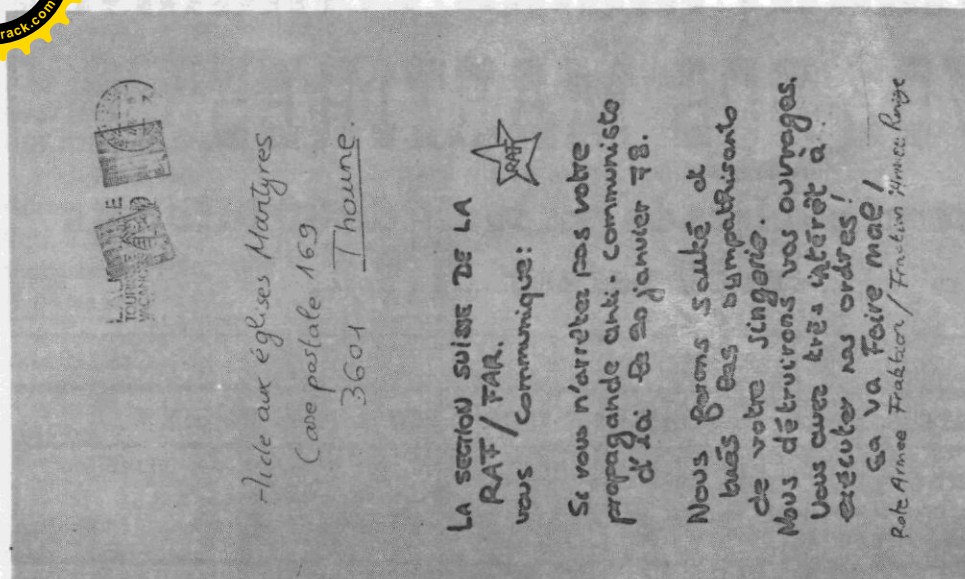 rack.com
TOURI
VACAN
Aide aux églises Martyres
Case postale 169
3601 Thoune.
LA SECTION SUISSE DE LA
RAF/FAR.
RAF
vous communique:
Si vous n'arrêtez pas votre
propagande anti-communiste
d'ici le 20 janvier 78.
Nous ferons sauté et
tués les sympathisants
de votre singerie.
Nous détruirons vos ouvrages.
Vous avez très intérêt à
exécuter nos ordres!
Ça va Foire mal!
Rote Armee Fraktion / Fraction Armee Rouge